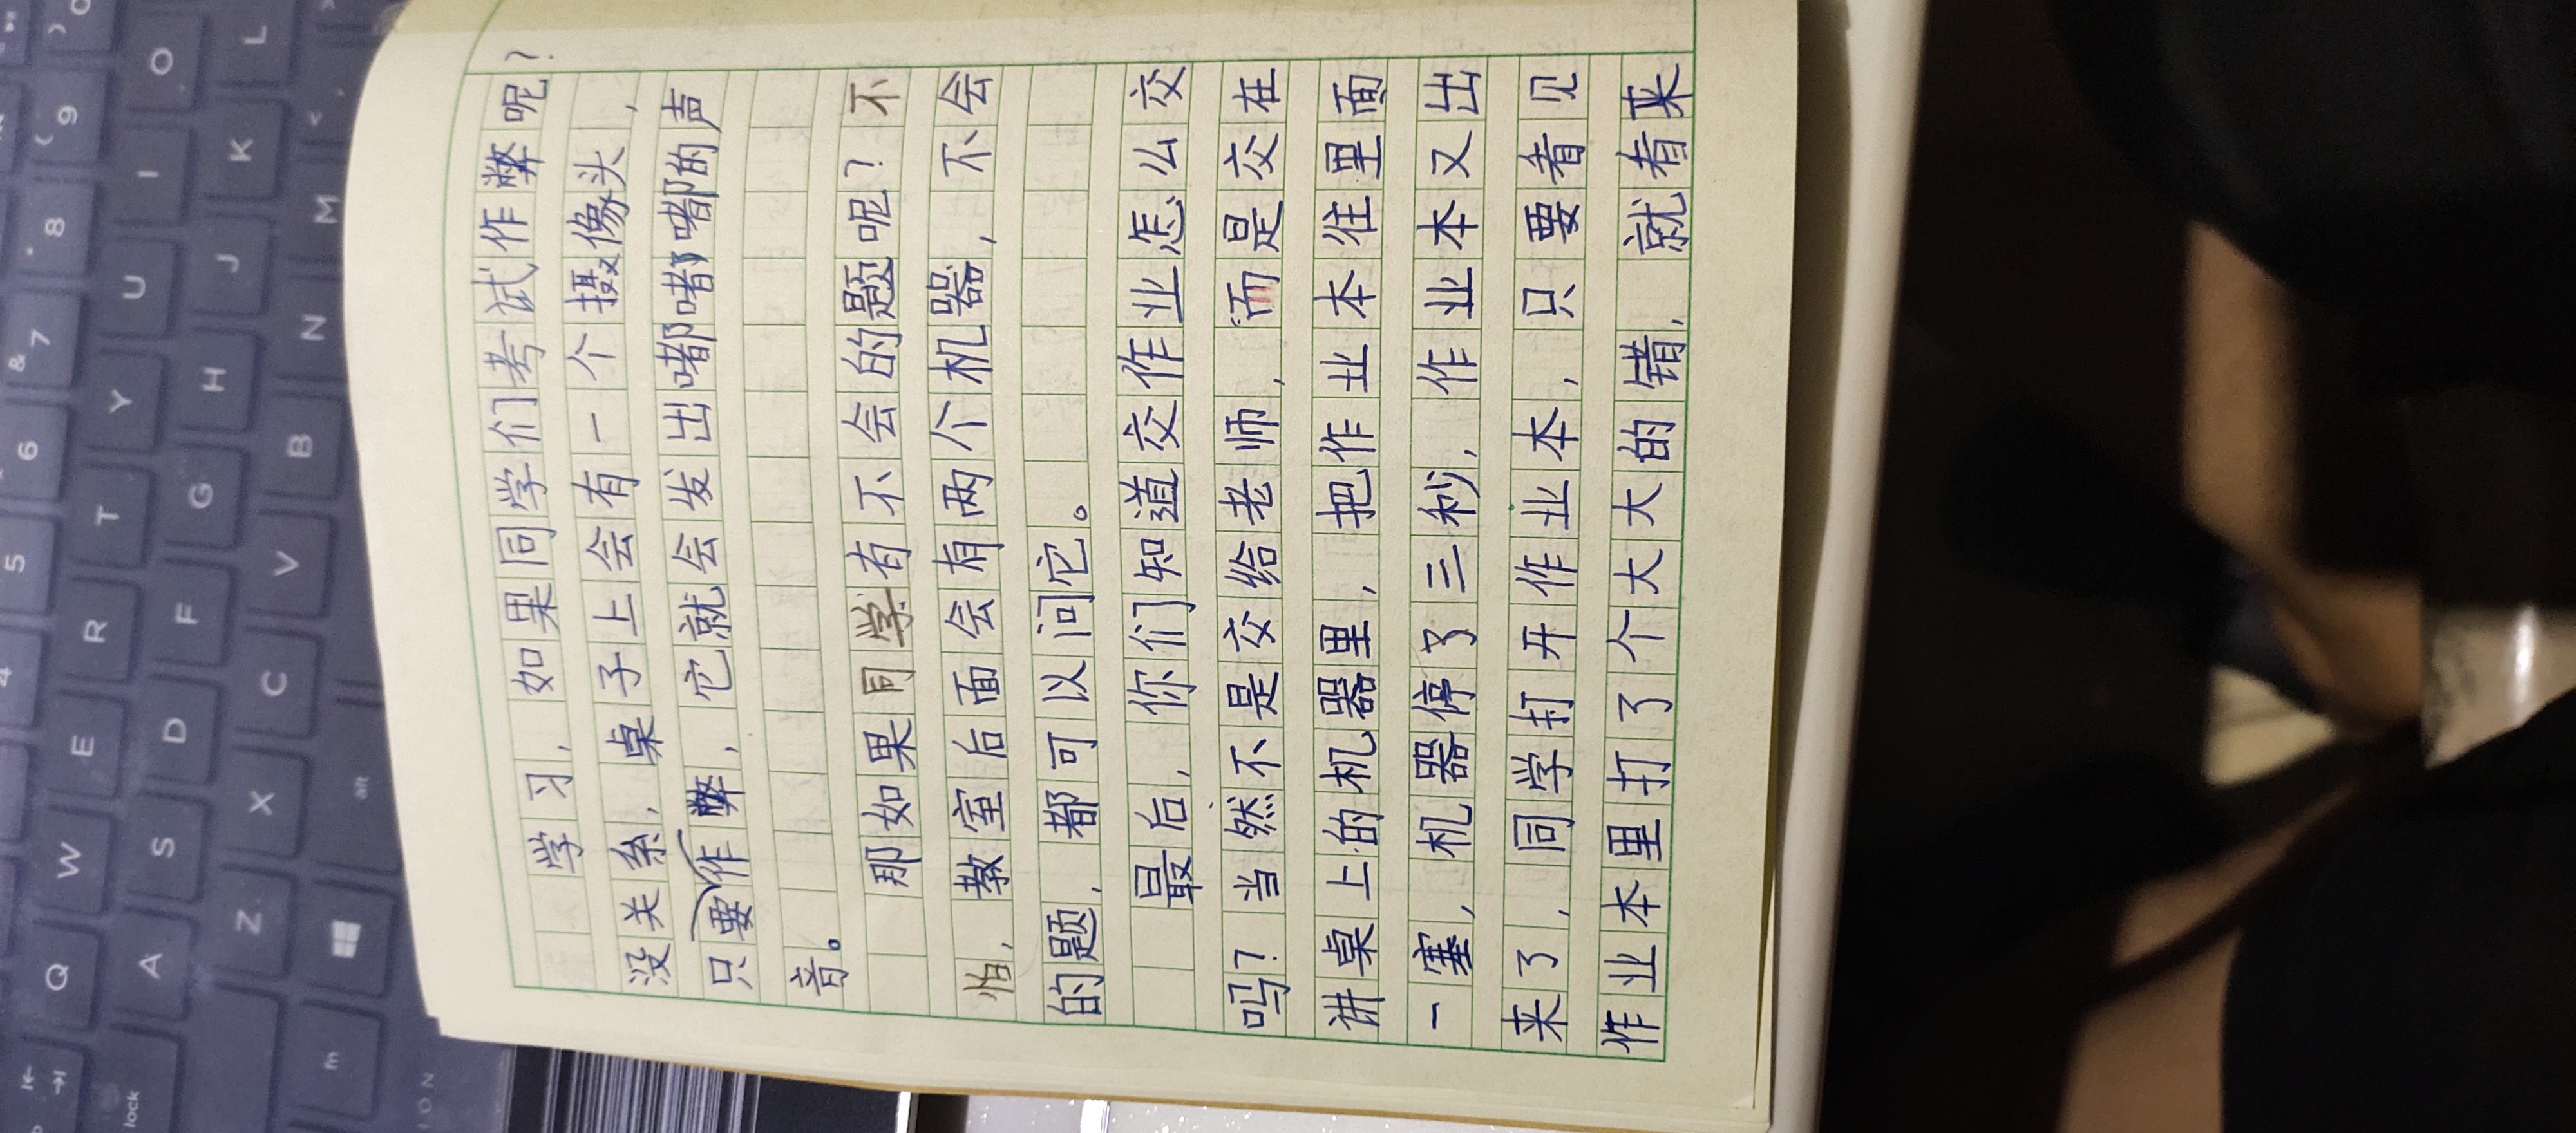 学习，如果同学们考试作弊呢？
没关系，桌子上会有一个摄像头，
只要作弊，它就会发出嘟嘟嘟的声
音。
那如果同学有不会的题呢？不
怕，教室后面会有两个机器，不会
的题，都可以问它。
最后，你们知道交作业怎么交
吗？当然不是交给老师，而是交在
讲桌上的机器里，把作业本往里面
一塞，机器停了三秒，作业本又出
来了，同学打开作业本，只要看见
作业本里打了个大大的错，就看来
Q W E R T Y U I O
A S D F G H J K L
Z X C V B N M
5 6 7 8 9
& (
alt
lock